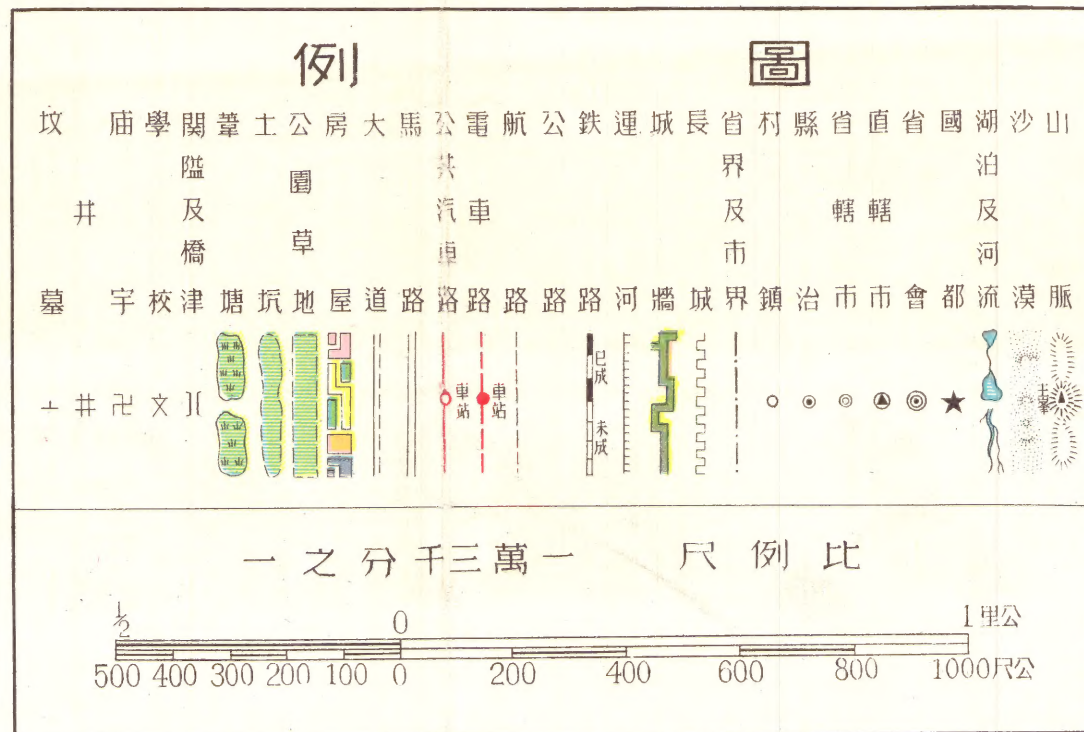 圖例
山脈
沙漠
湖泊及河流
國都
省會
直轄市
省轄市
縣治
村鎮
省界及市界
長城
城牆
運河
鉄路
公路
航路
電車路
公共汽車路
馬路
大道
房屋
公園草地
土坑
葦塘
関隘及橋津
學校
庙宇
井
坟墓
已成
未成
車站
車站
文
卍
井
比例尺 一萬三千分之一
½ 0 1 公里
500 400 300 200 100 0 200 400 600 800 1000 公尺